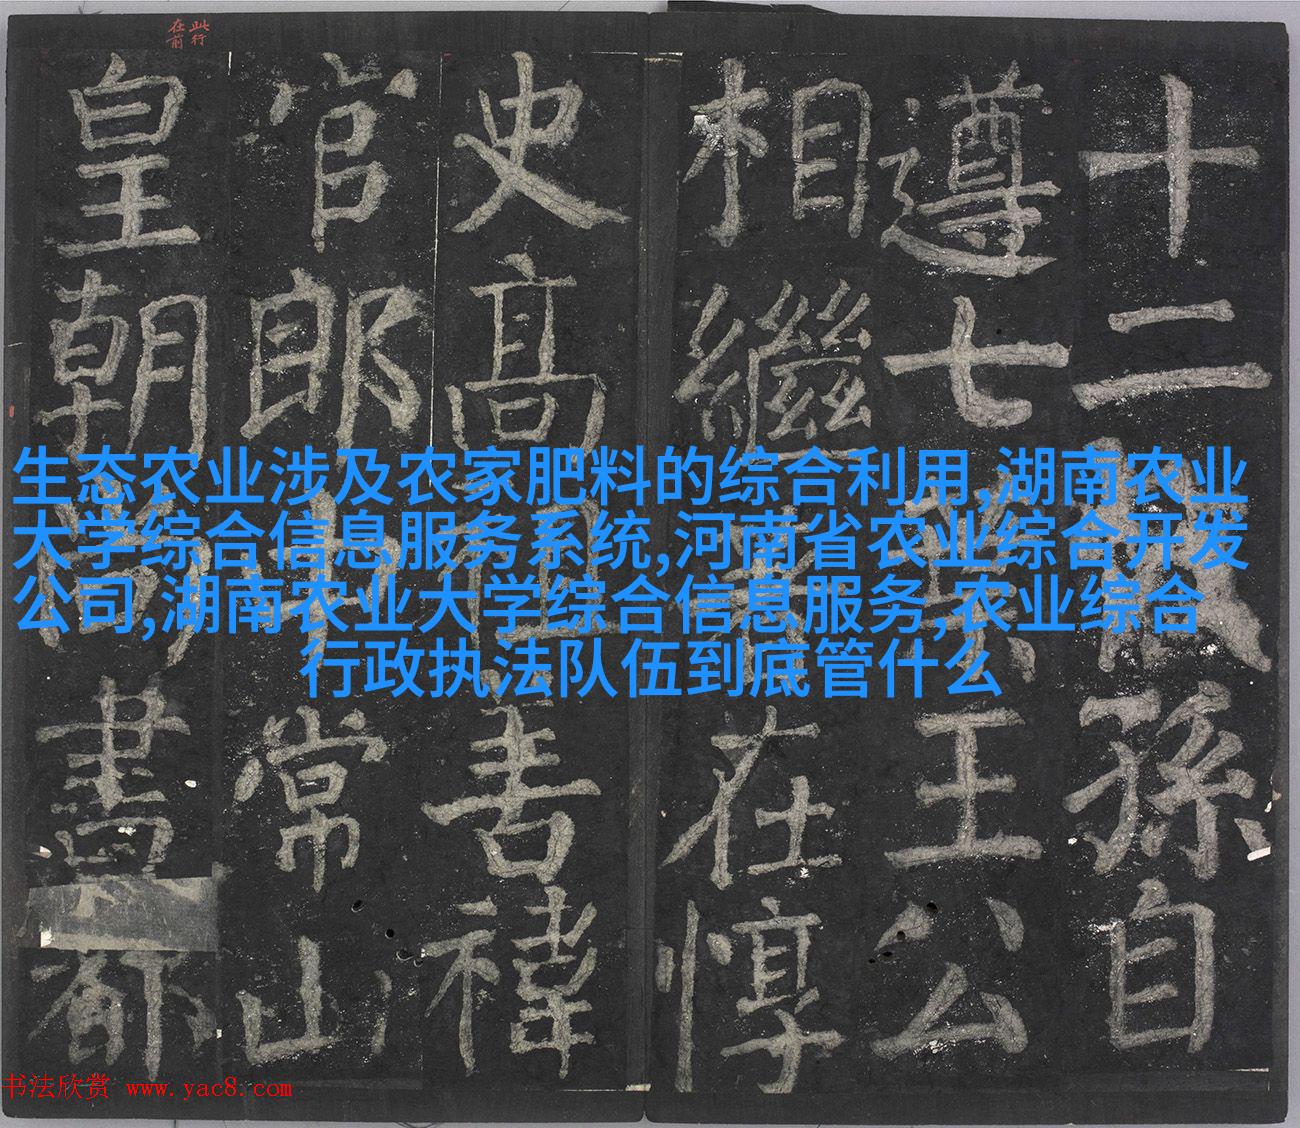 十二孫自
遵七王公
相繼在惇
史高善褘
官郎中常山
皇朝尚書都
此行
在前
生态农业涉及农家肥料的综合利用,湖南农业
大学综合信息服务系统,河南省农业综合开发
公司,湖南农业大学综合信息服务,农业综合
行政执法队伍到底管什么
书法欣赏 www.yac8.com